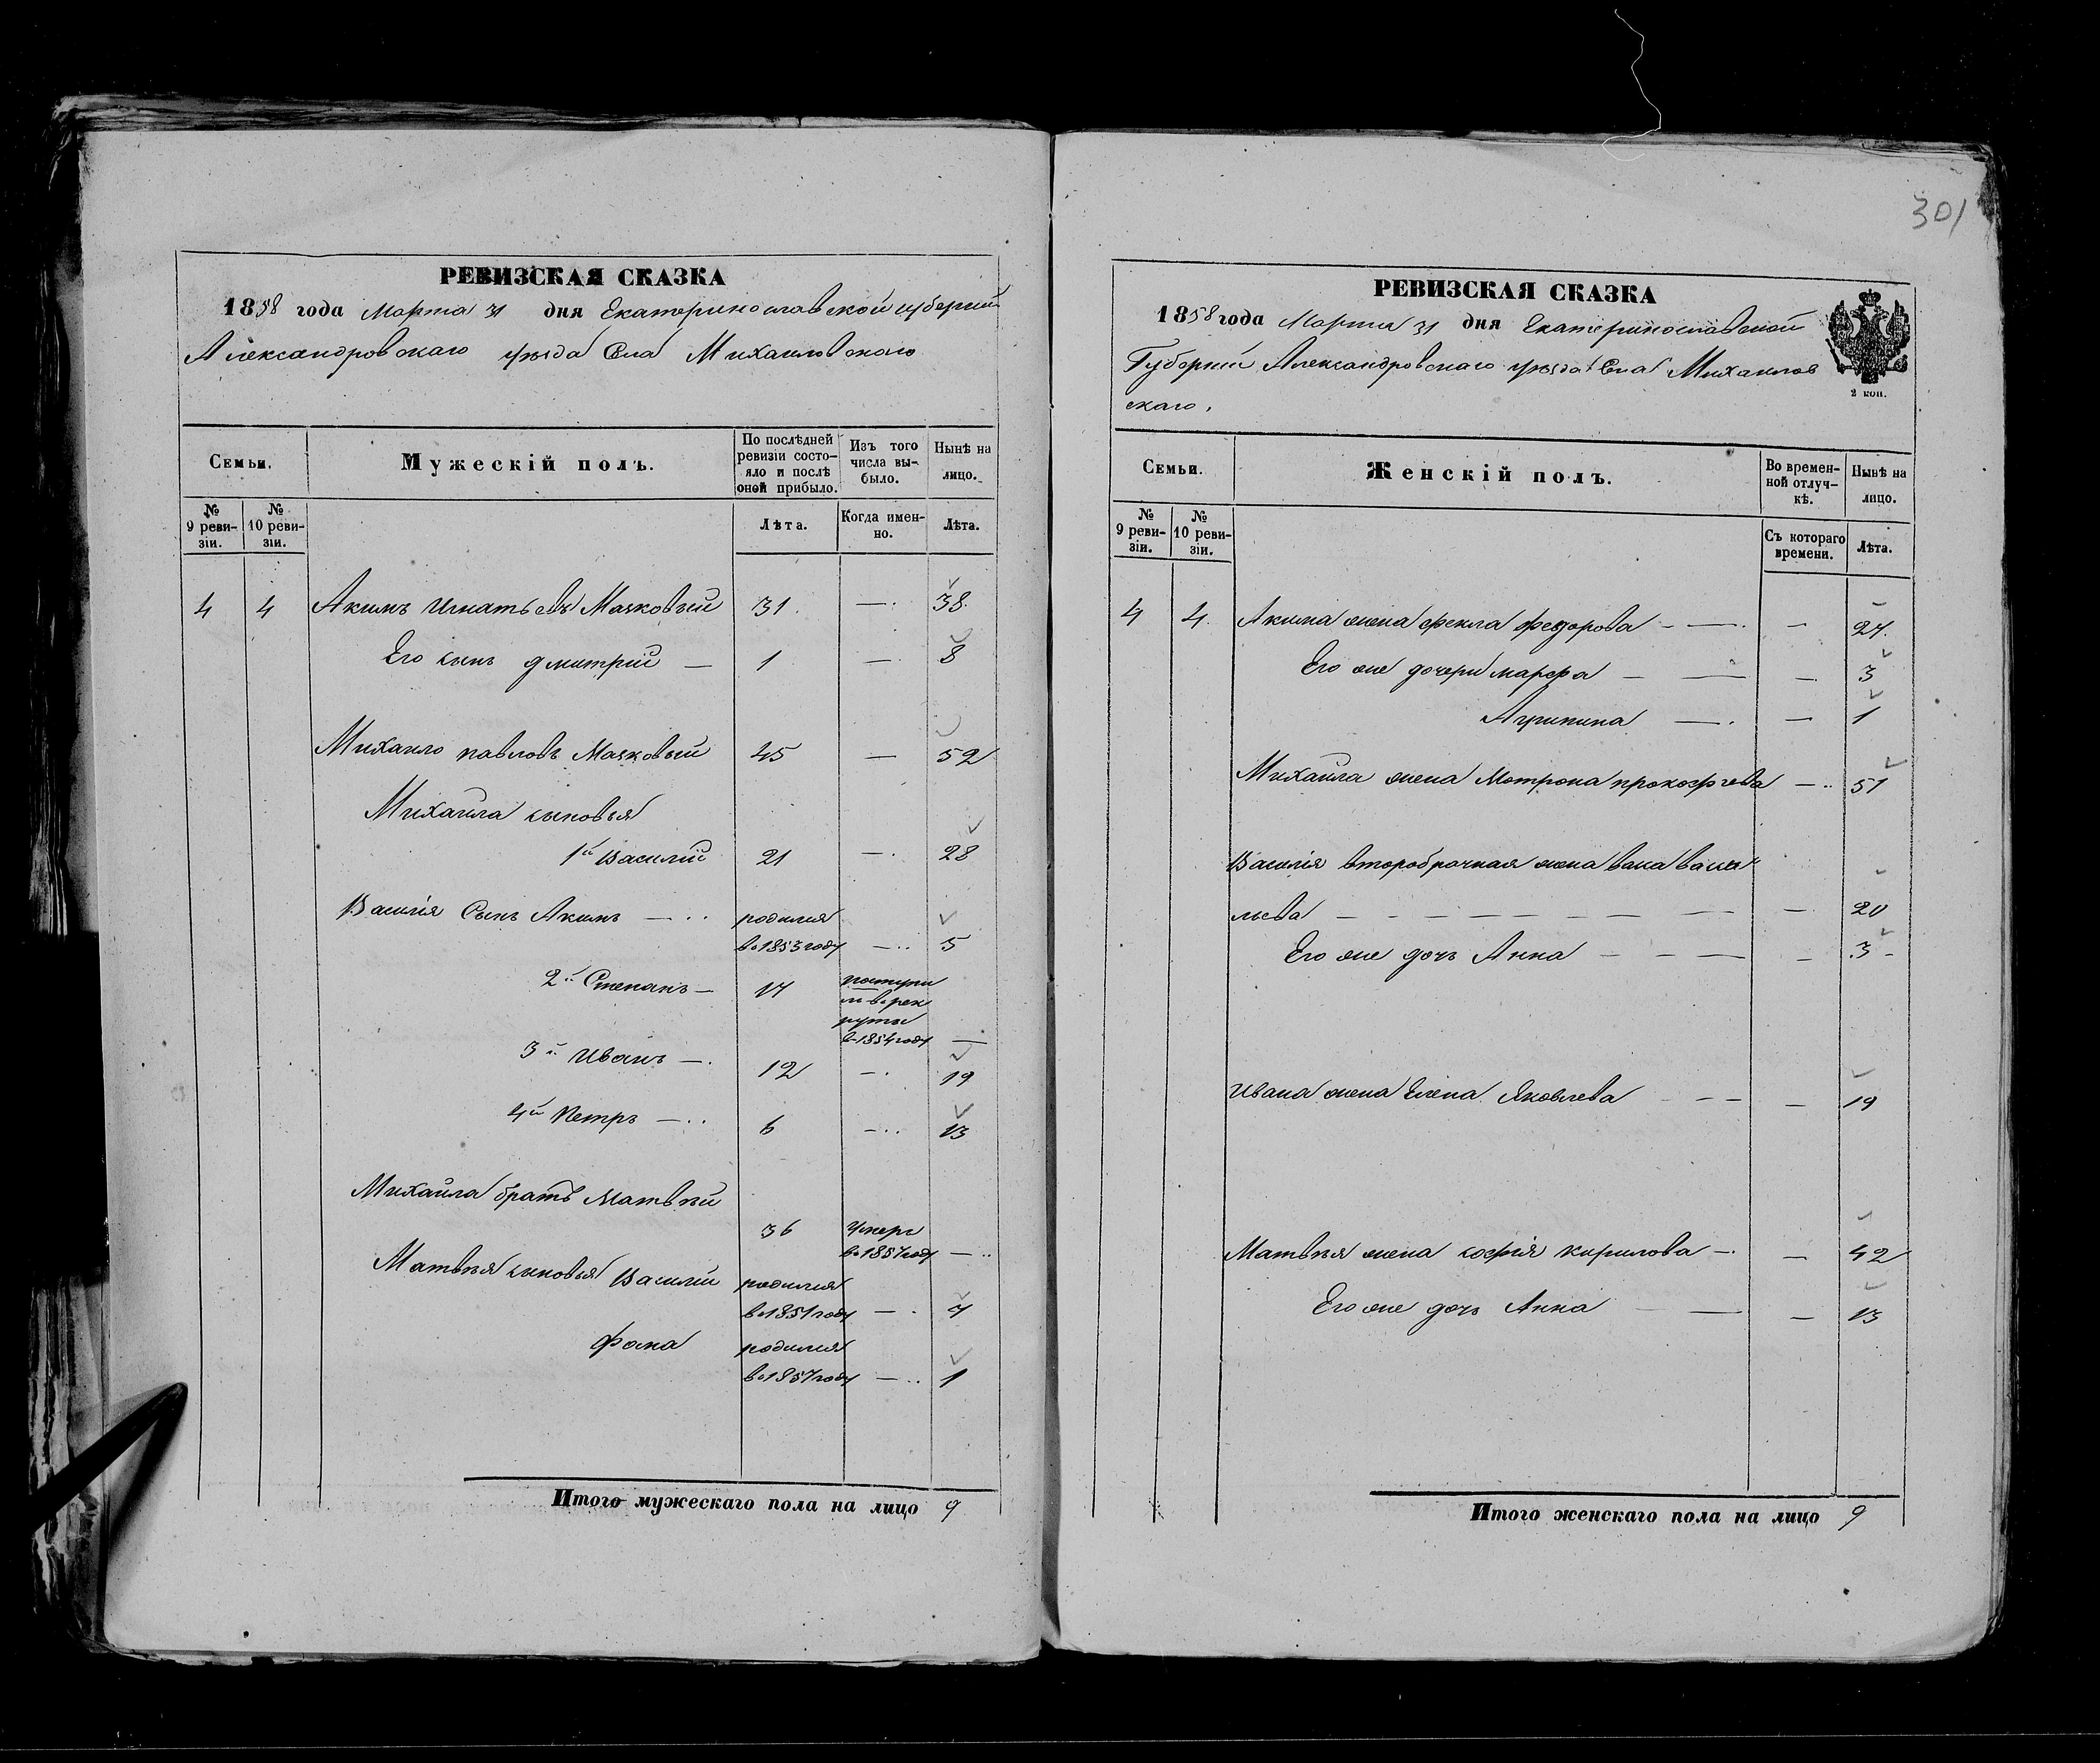 301
РЕВИЗСКАЯ СКАЗКА
1858 года Марта 31 дня Екатеринославской губернии
Александровскаго уѣзда Села Михайловскаго
Семьи.
Мужескій полъ.
По послѣдней ревизіи состояло и послѣ оной прибыло.
Изъ того числа выбыло.
Нынѣ на лицо.
№ 9 ревизіи.
№ 10 ревизіи.
Лѣта.
Когда именно.
Лѣта.
4 4 Акимъ Игнатьевъ Маяковый 31 — 38
Его сынъ дмитрій — 1 — 8
Михайло павловъ Маяковый 45 — 52
Михайла сыновья
1й Василій 21 — 28
Василія Сынъ Акимъ — родился
во 1853 году — 5
2й Степанъ — 17 поступи
л в рек
руты
в 1854 году —
3й Иванъ — 12 — 19
4й Петръ — 6 — 13
Михайла братъ Матвѣй
36 умеръ
во 1857 году —
Матвѣя сыновья Василій родился
во 1851 году — 7
Фома родился
во 1857 году — 1
Итого мужескаго пола на лицо 9
РЕВИЗСКАЯ СКАЗКА
1858 года Марта 31 дня Екатеринославской
Губерніи Александровскаго уѣзда Села Михайлов
скаго.
2 коп.
Семьи.
Женскій полъ.
Во временной отлучкѣ.
Нынѣ на лицо.
№ 9 ревизіи.
№ 10 ревизіи.
Съ котораго времени.
Лѣта.
4 4 Акима жена фекла федорова — — 27
Его же дочери марфа — — 3
Агрипина — — 1
Михайла жена Мотрона прокофіева — 51
Василія второбрачная жена
льева — — 20
Его же дочь Анна — — 3
Ивана жена Елена Яковлева — — 19
Матвѣя жена софія кирилова — — 42
Его же дочь Анна — — 13
Итого женскаго пола на лицо 9